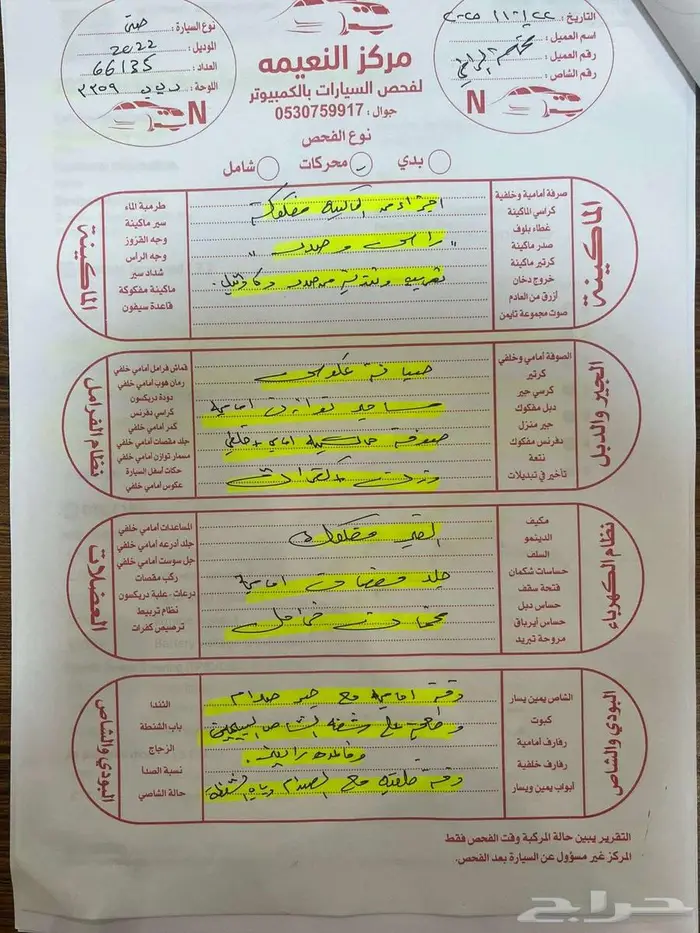 نوع السيارة :
الموديل : 2022
العداد : 66135
اللوحة : ٣٣٥٩
N
مركز النعيمه
لفحص السيارات بالكمبيوتر
جوال : 0530759917
التاريخ :
اسم العميل :
رقم العميل :
رقم الشاص :
N
نوع الفحص
بدي
محركات
شامل
الماكينة
صرفة أمامية وخلفية
كراسي الماكينة
غطاء بلوف
صدر ماكينة
كرتير ماكينة
خروج دخان
أزرق من العادم
صوت مجموعة تايمن
اجزاء من الماكينة مفكوكة
" راس و صدر "
تهريب وتنزيل من صدر وكارتيل .
طرمبة الماء
سير ماكينة
وجه القزوز
وجه الرأس
شداد سير
ماكينة مفكوكة
قاعدة سيفون
الماكينة
الجير والدبل
الصوفة أمامي وخلفي
كرتير
كرسي جير
دبل مفكوك
جير منزل
دفرنس مفكوك
نتعة
تأخير في تبديلات
صيانة عكوس
مسامير توازن امامية
قماش فرامل أمامي خلفي
رمان هوب أمامي خلفي
دودة دريكسون
كراسي دفرنس
كمر أمامي خلفي
جلد مقصات أمامي خلفي
مسمار توازن أمامي خلفي
حكات أسفل السيارة
عكوس أمامي خلفي
نظام الفرامل
نظام الكهرباء
مكيف
الدينمو
السلف
حساسات شكمان
فتحة سقف
حساس دبل
حساس أيرباق
مروحة تبريد
القير مفكوك
جلد مقصات امامية
المساعدات أمامي خلفي
جلد أذرعه أمامي خلفي
جل سوست أمامي خلفي
ركب مقصات
درعات - علبة دريكسون
نظام تربيط
ترصيص كفرات
العضلات
البودي والشاص
الشاص يمين يسار
كبوت
رفارف أمامية
رفارف خلفية
أبواب يمين ويسار
دقة امامية مع جسر صدام
وقاعدة رديتر .
دقة خلفية مع الصدام وباب الشنطة
الثندا
باب الشنطة
الزجاج
نسبة الصدأ
حالة الشاصي
البودي والشاص
التقرير يبين حالة المركبة وقت الفحص فقط
المركز غير مسؤول عن السيارة بعد الفحص.
حراج